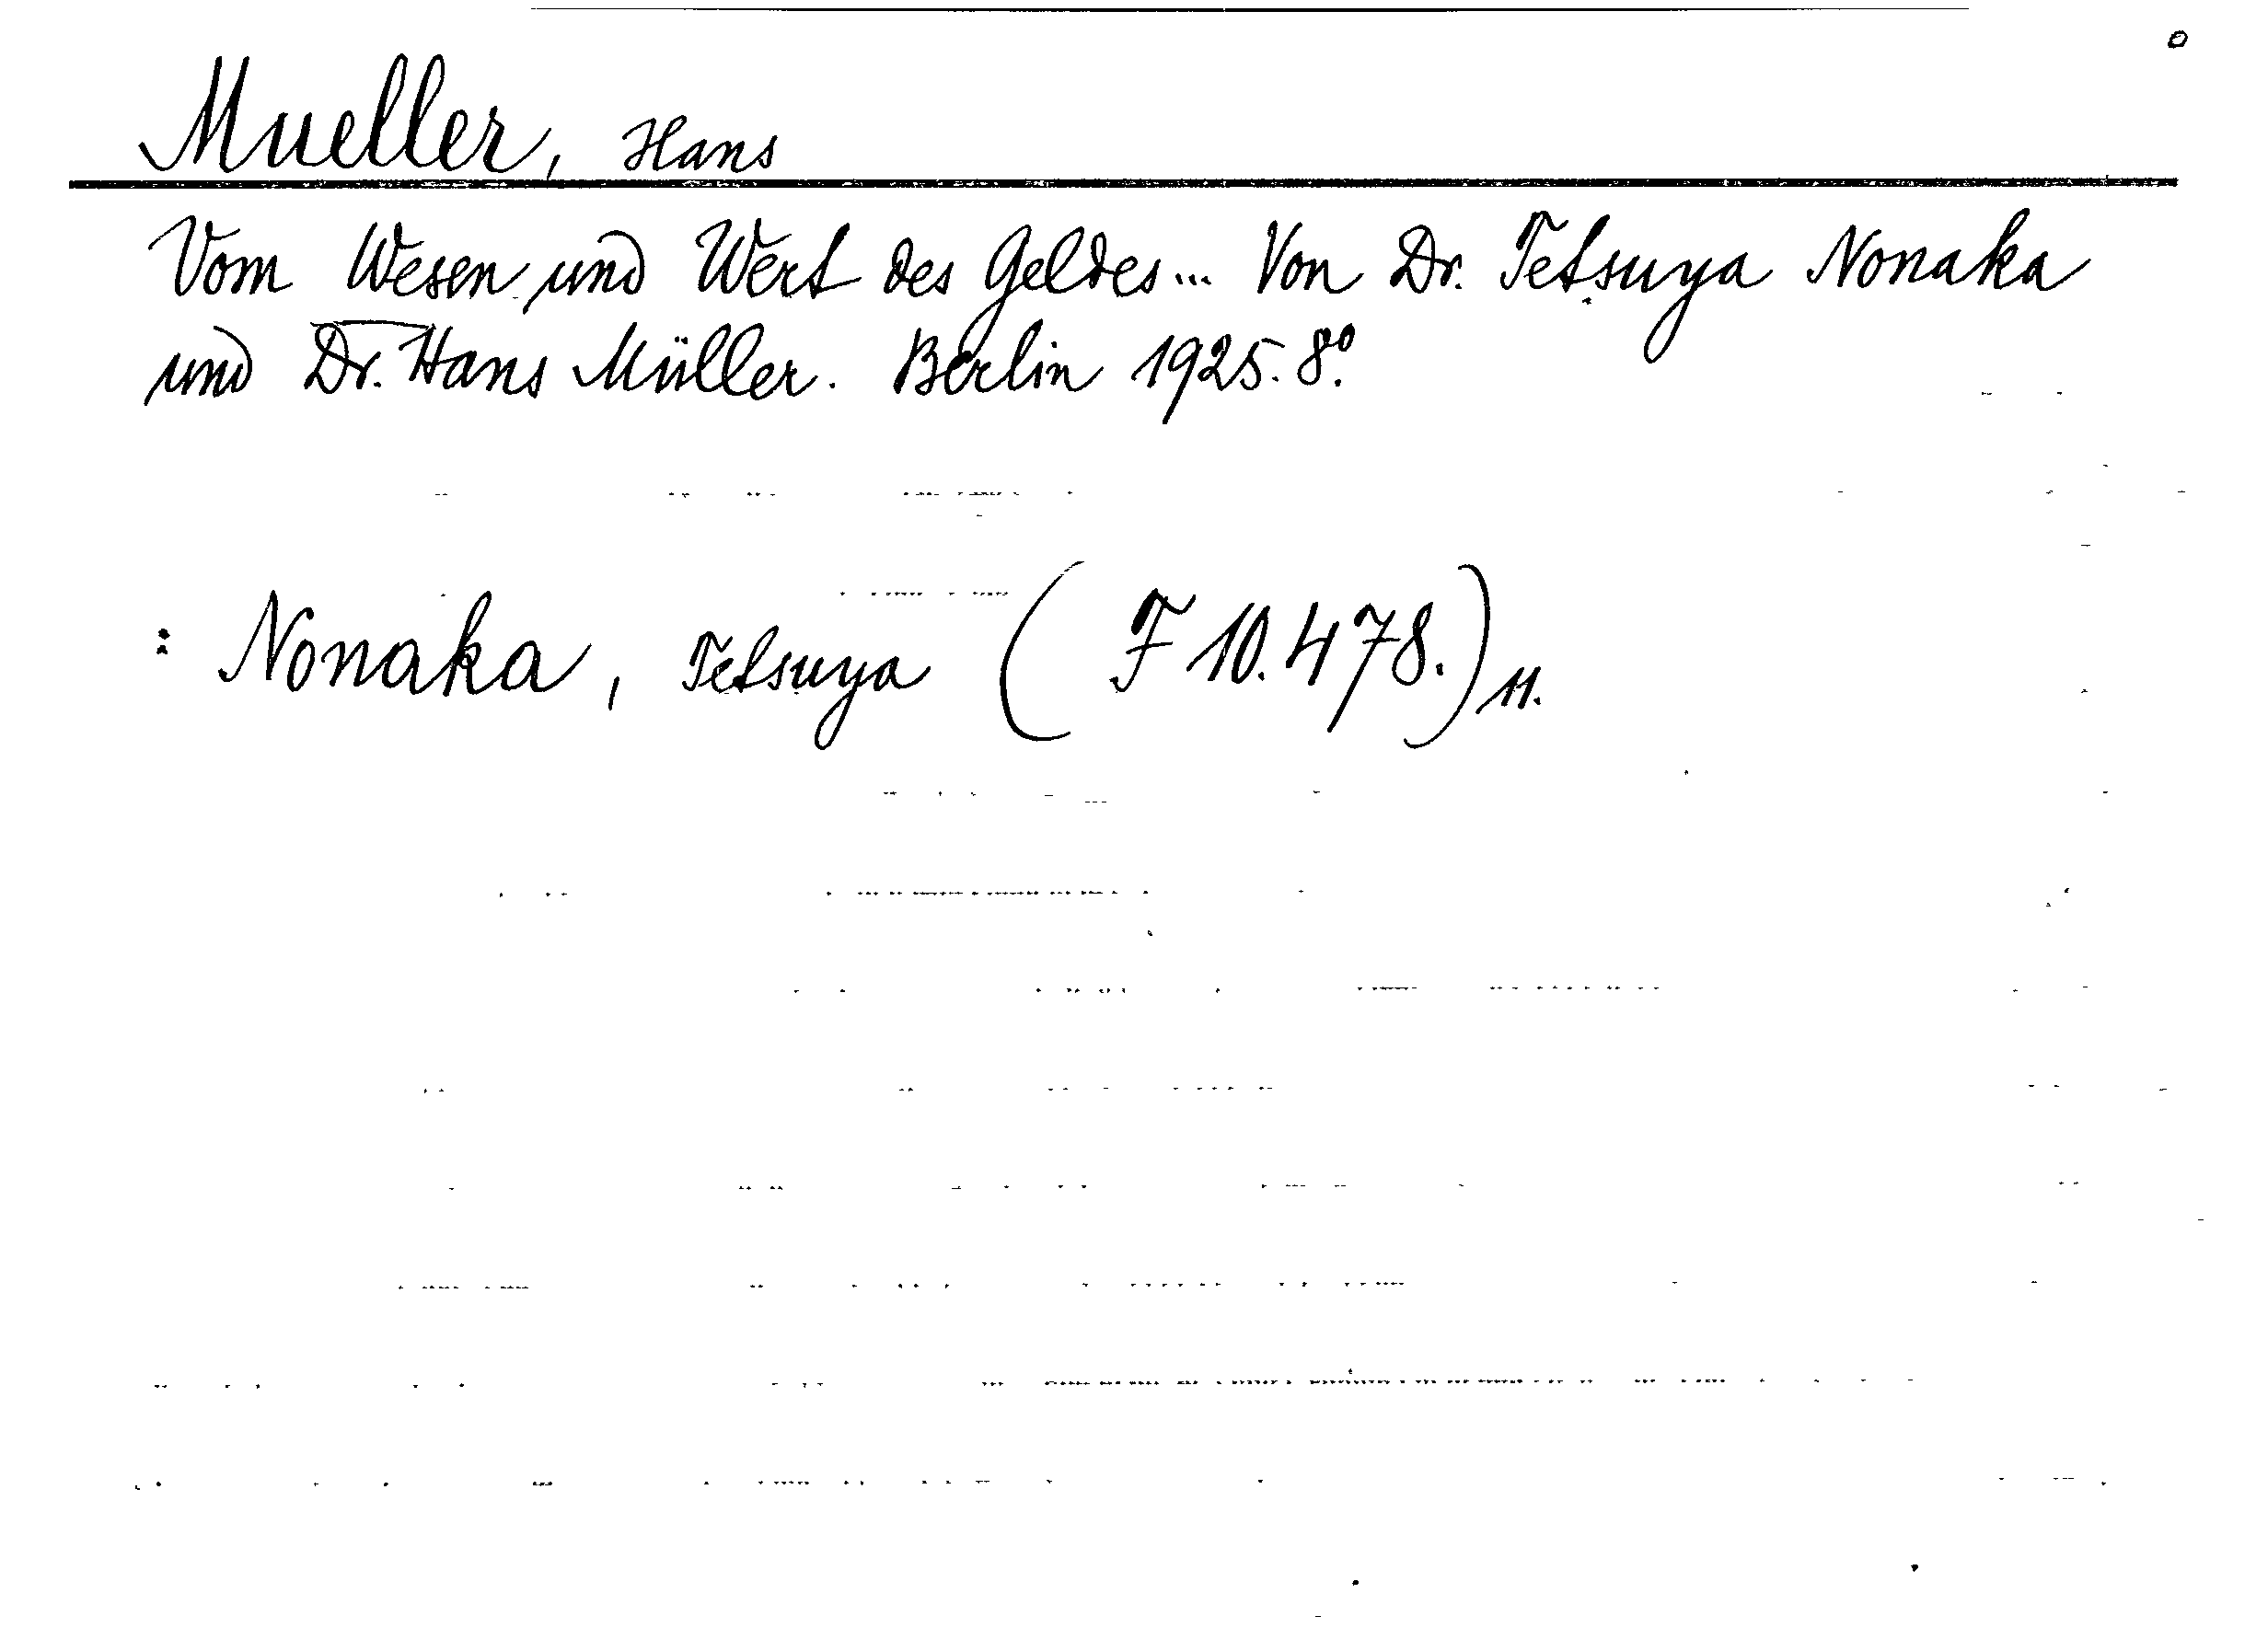 Mueller, Hans
Vom Wesen und Wert des Geldes... Von Dr. Tetsuya Nonaka
und Dr. Hans Müller. Berlin 1925. 8°.
: Nonaka, Tetsuya (F 10.478.) 11.